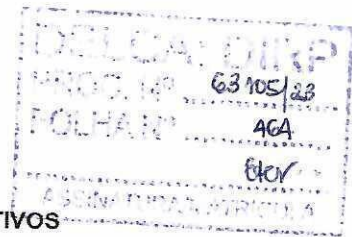 DELCA: DIRP
PROC. Nº 63105/23
FOLHA Nº 464
ASSINATURA/MATRÍCULA
TIVOS